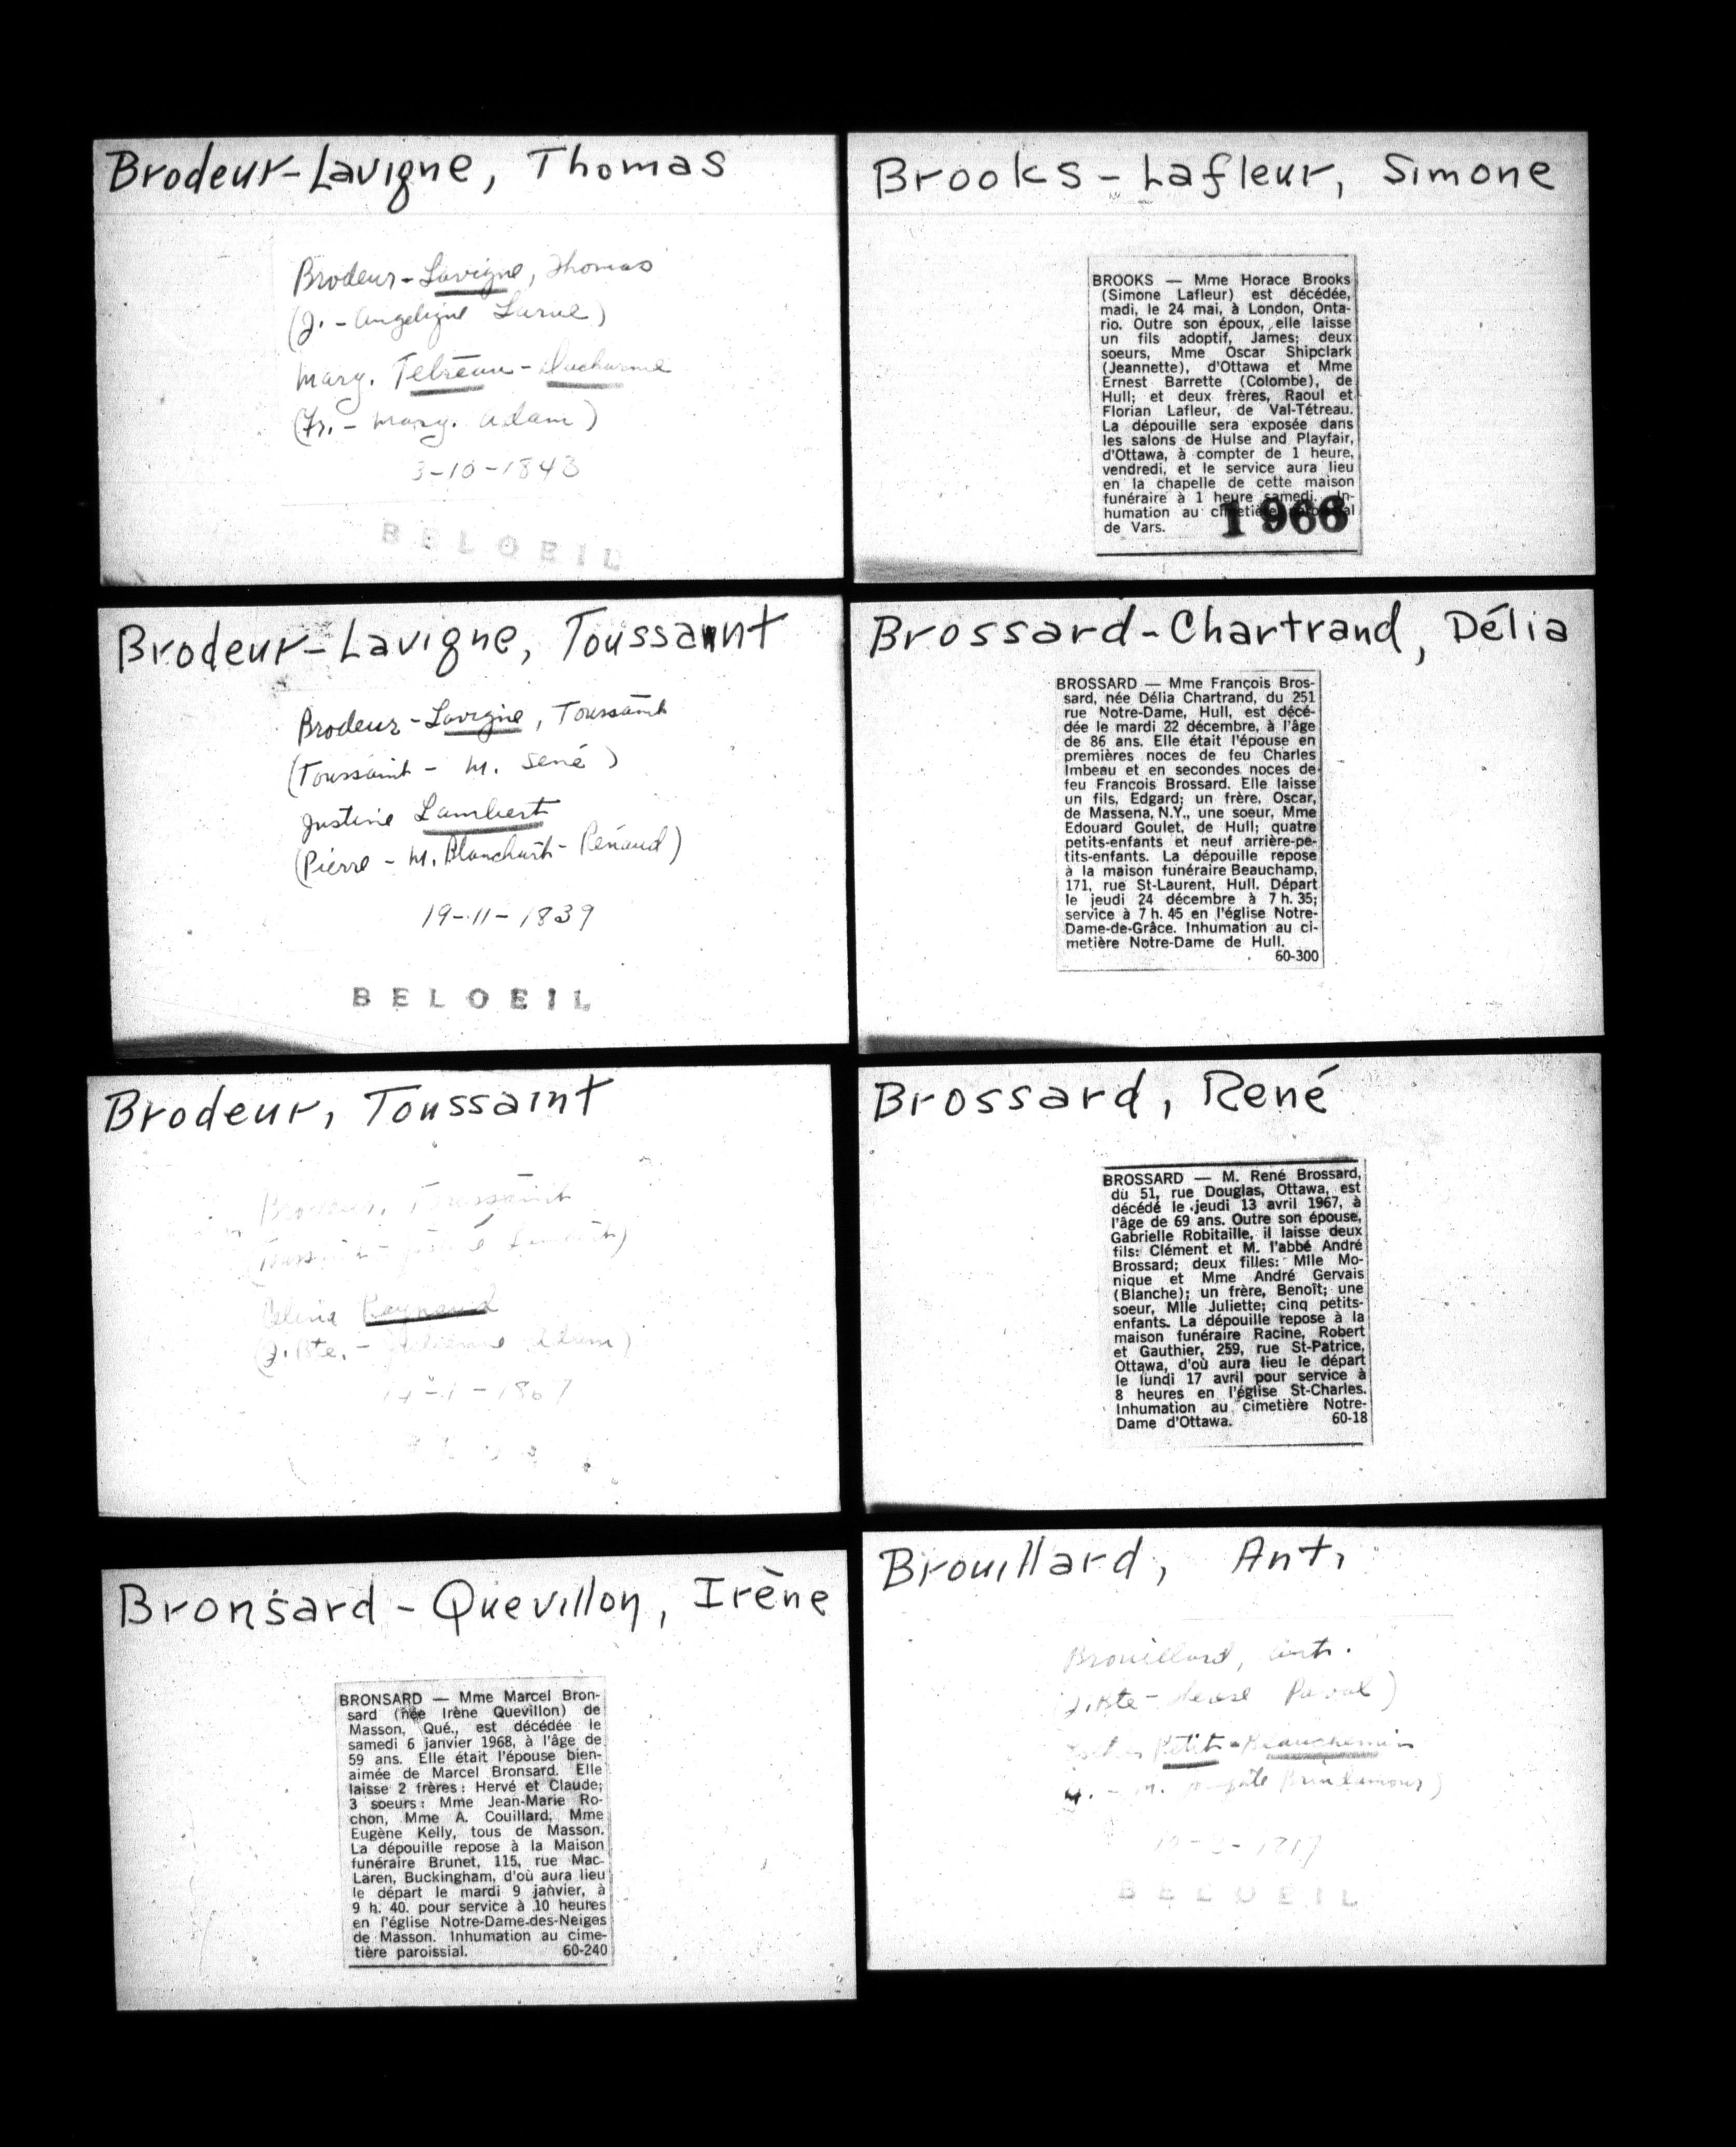 Brodeur-Lavigne, Thomas
Brodeur-Lavigne, Thomas
(J. - Angelique Larue)
Marg. Tetreau-Ducharme
(Fr. - Marg. Adam)
3-10-1843
BELOEIL
Brodeur-Lavigne, Toussaint
Brodeur-Lavigne, Toussaint
(Toussaint - M. Sené)
Justine Lambert
(Pierre - M. Blanchart-Renaud)
19-11-1839
BELOEIL
Brodeur, Toussaint
Brodeur, Toussaint
Celina Raynaud
(J. Bte. - Adam)
Bronsard-Quevillon, Irène
BRONSARD — Mme Marcel Bron-
sard (née Irène Quevillon) de
Masson, Qué., est décédée le
samedi 6 janvier 1968, à l'âge de
59 ans. Elle était l'épouse bien-
aimée de Marcel Bronsard. Elle
laisse 2 frères: Hervé et Claude;
3 soeurs: Mme Jean-Marie Ro-
chon, Mme A. Couillard, Mme
Eugène Kelly, tous de Masson.
La dépouille repose à la Maison
funéraire Brunet, 115, rue Mac-
Laren, Buckingham, d'où aura lieu
le départ le mardi 9 janvier, à
9 h. 40. pour service à 10 heures
en l'église Notre-Dame-des-Neiges
de Masson. Inhumation au cime-
tière paroissial. 60-240
Brooks-Lafleur, Simone
BROOKS — Mme Horace Brooks
(Simone Lafleur) est décédée,
madi, le 24 mai, à London, Onta-
rio. Outre son époux, elle laisse
un fils adoptif, James; deux
soeurs, Mme Oscar Shipclark
(Jeannette), d'Ottawa et Mme
Ernest Barrette (Colombe), de
Hull; et deux frères, Raoul et
Florian Lafleur, de Val-Tétreau.
La dépouille sera exposée dans
les salons de Hulse and Playfair,
d'Ottawa, à compter de 1 heure,
vendredi, et le service aura lieu
en la chapelle de cette maison
funéraire à 1 heure samedi. In-
humation au cimetière paroissial
de Vars. 1966
Brossard-Chartrand, Délia
BROSSARD — Mme François Bros-
sard, née Délia Chartrand, du 251
rue Notre-Dame, Hull, est décé-
dée le mardi 22 décembre, à l'âge
de 86 ans. Elle était l'épouse en
premières noces de feu Charles
Imbeau et en secondes noces de
feu François Brossard. Elle laisse
un fils, Edgard; un frère, Oscar,
de Massena, N.Y., une soeur, Mme
Edouard Goulet, de Hull; quatre
petits-enfants et neuf arrière-pe-
tits-enfants. La dépouille repose
à la maison funéraire Beauchamp,
171, rue St-Laurent, Hull. Départ
le jeudi 24 décembre à 7 h. 35;
service à 7 h. 45 en l'église Notre-
Dame-de-Grâce. Inhumation au ci-
metière Notre-Dame de Hull.
60-300
Brossard, René
BROSSARD — M. René Brossard,
du 51, rue Douglas, Ottawa, est
décédé le jeudi 13 avril 1967, à
l'âge de 69 ans. Outre son épouse,
Gabrielle Robitaille, il laisse deux
fils: Clément et M. l'abbé André
Brossard; deux filles: Mlle Mo-
nique et Mme André Gervais
(Blanche); un frère, Benoît; une
soeur, Mlle Juliette; cinq petits-
enfants. La dépouille repose à la
maison funéraire Racine, Robert
et Gauthier, 259, rue St-Patrice,
Ottawa, d'où aura lieu le départ
le lundi 17 avril pour service à
8 heures en l'église St-Charles.
Inhumation au cimetière Notre-
Dame d'Ottawa. 60-18
Brouillard, Ant.
Brouillard, Ant.
J. Bte -
Petit-Beauchemin
BELOEIL